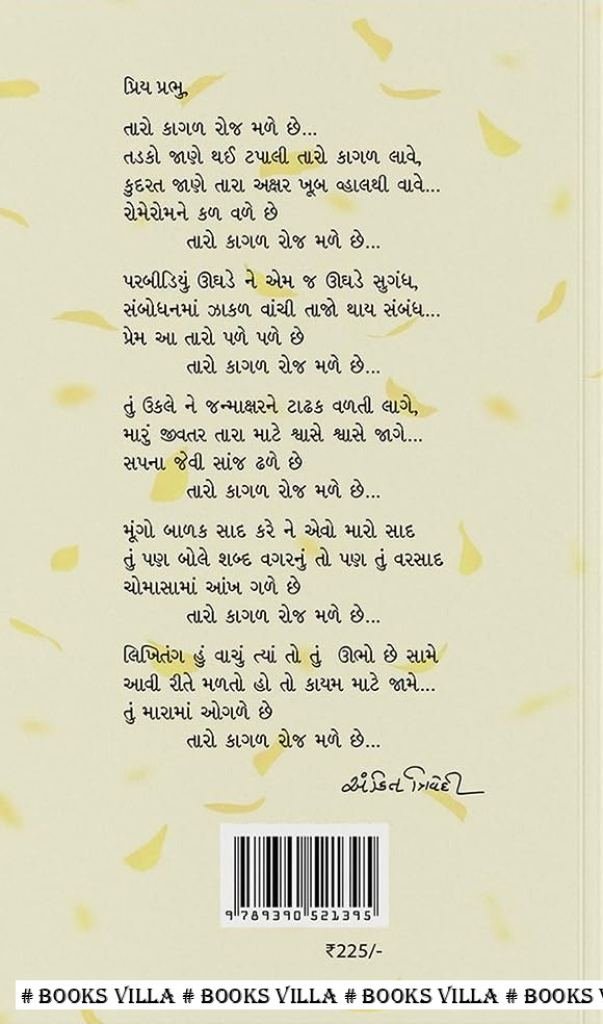 પ્રિય પ્રભુ,
તારો કાગળ રોજ મળે છે...
તડકો જાણે થઈ ટપાલી તારો કાગળ લાવે,
કુદરત જાણે તારા અક્ષર ખૂબ વ્હાલથી વાવે...
રોમેરોમને કળ વળે છે
તારો કાગળ રોજ મળે છે...
પરબીડિયું ઊઘડે ને એમ જ ઊઘડે સુગંધ,
સંબોધનમાં ઝાકળ વાંચી તાજો થાય સંબંધ...
પ્રેમ આ તારો પળે પળે છે
તારો કાગળ રોજ મળે છે...
તું ઉકલે ને જન્માક્ષરને ટાઢક વળતી લાગે,
મારું જીવતર તારા માટે શ્વાસે શ્વાસે જાગે...
સપના જેવી સાંજ ઢળે છે
તારો કાગળ રોજ મળે છે...
મૂંગો બાળક સાદ કરે ને એવો મારો સાદ
તું પણ બોલે શબ્દ વગરનું તો પણ તું વરસાદ
ચોમાસામાં આંખ ગળે છે
તારો કાગળ રોજ મળે છે...
લિખિતંગ હું વાચું ત્યાં તો તું ઊભો છે સામે
આવી રીતે મળતો હો તો કાયમ માટે જામે...
તું મારામાં ઓગળે છે
તારો કાગળ રોજ મળે છે...
અંકિત ત્રિવેદી
9 789390 521395
₹225/-
# BOOKS VILLA # BOOKS VILLA # BOOKS VILLA # BOOKS V